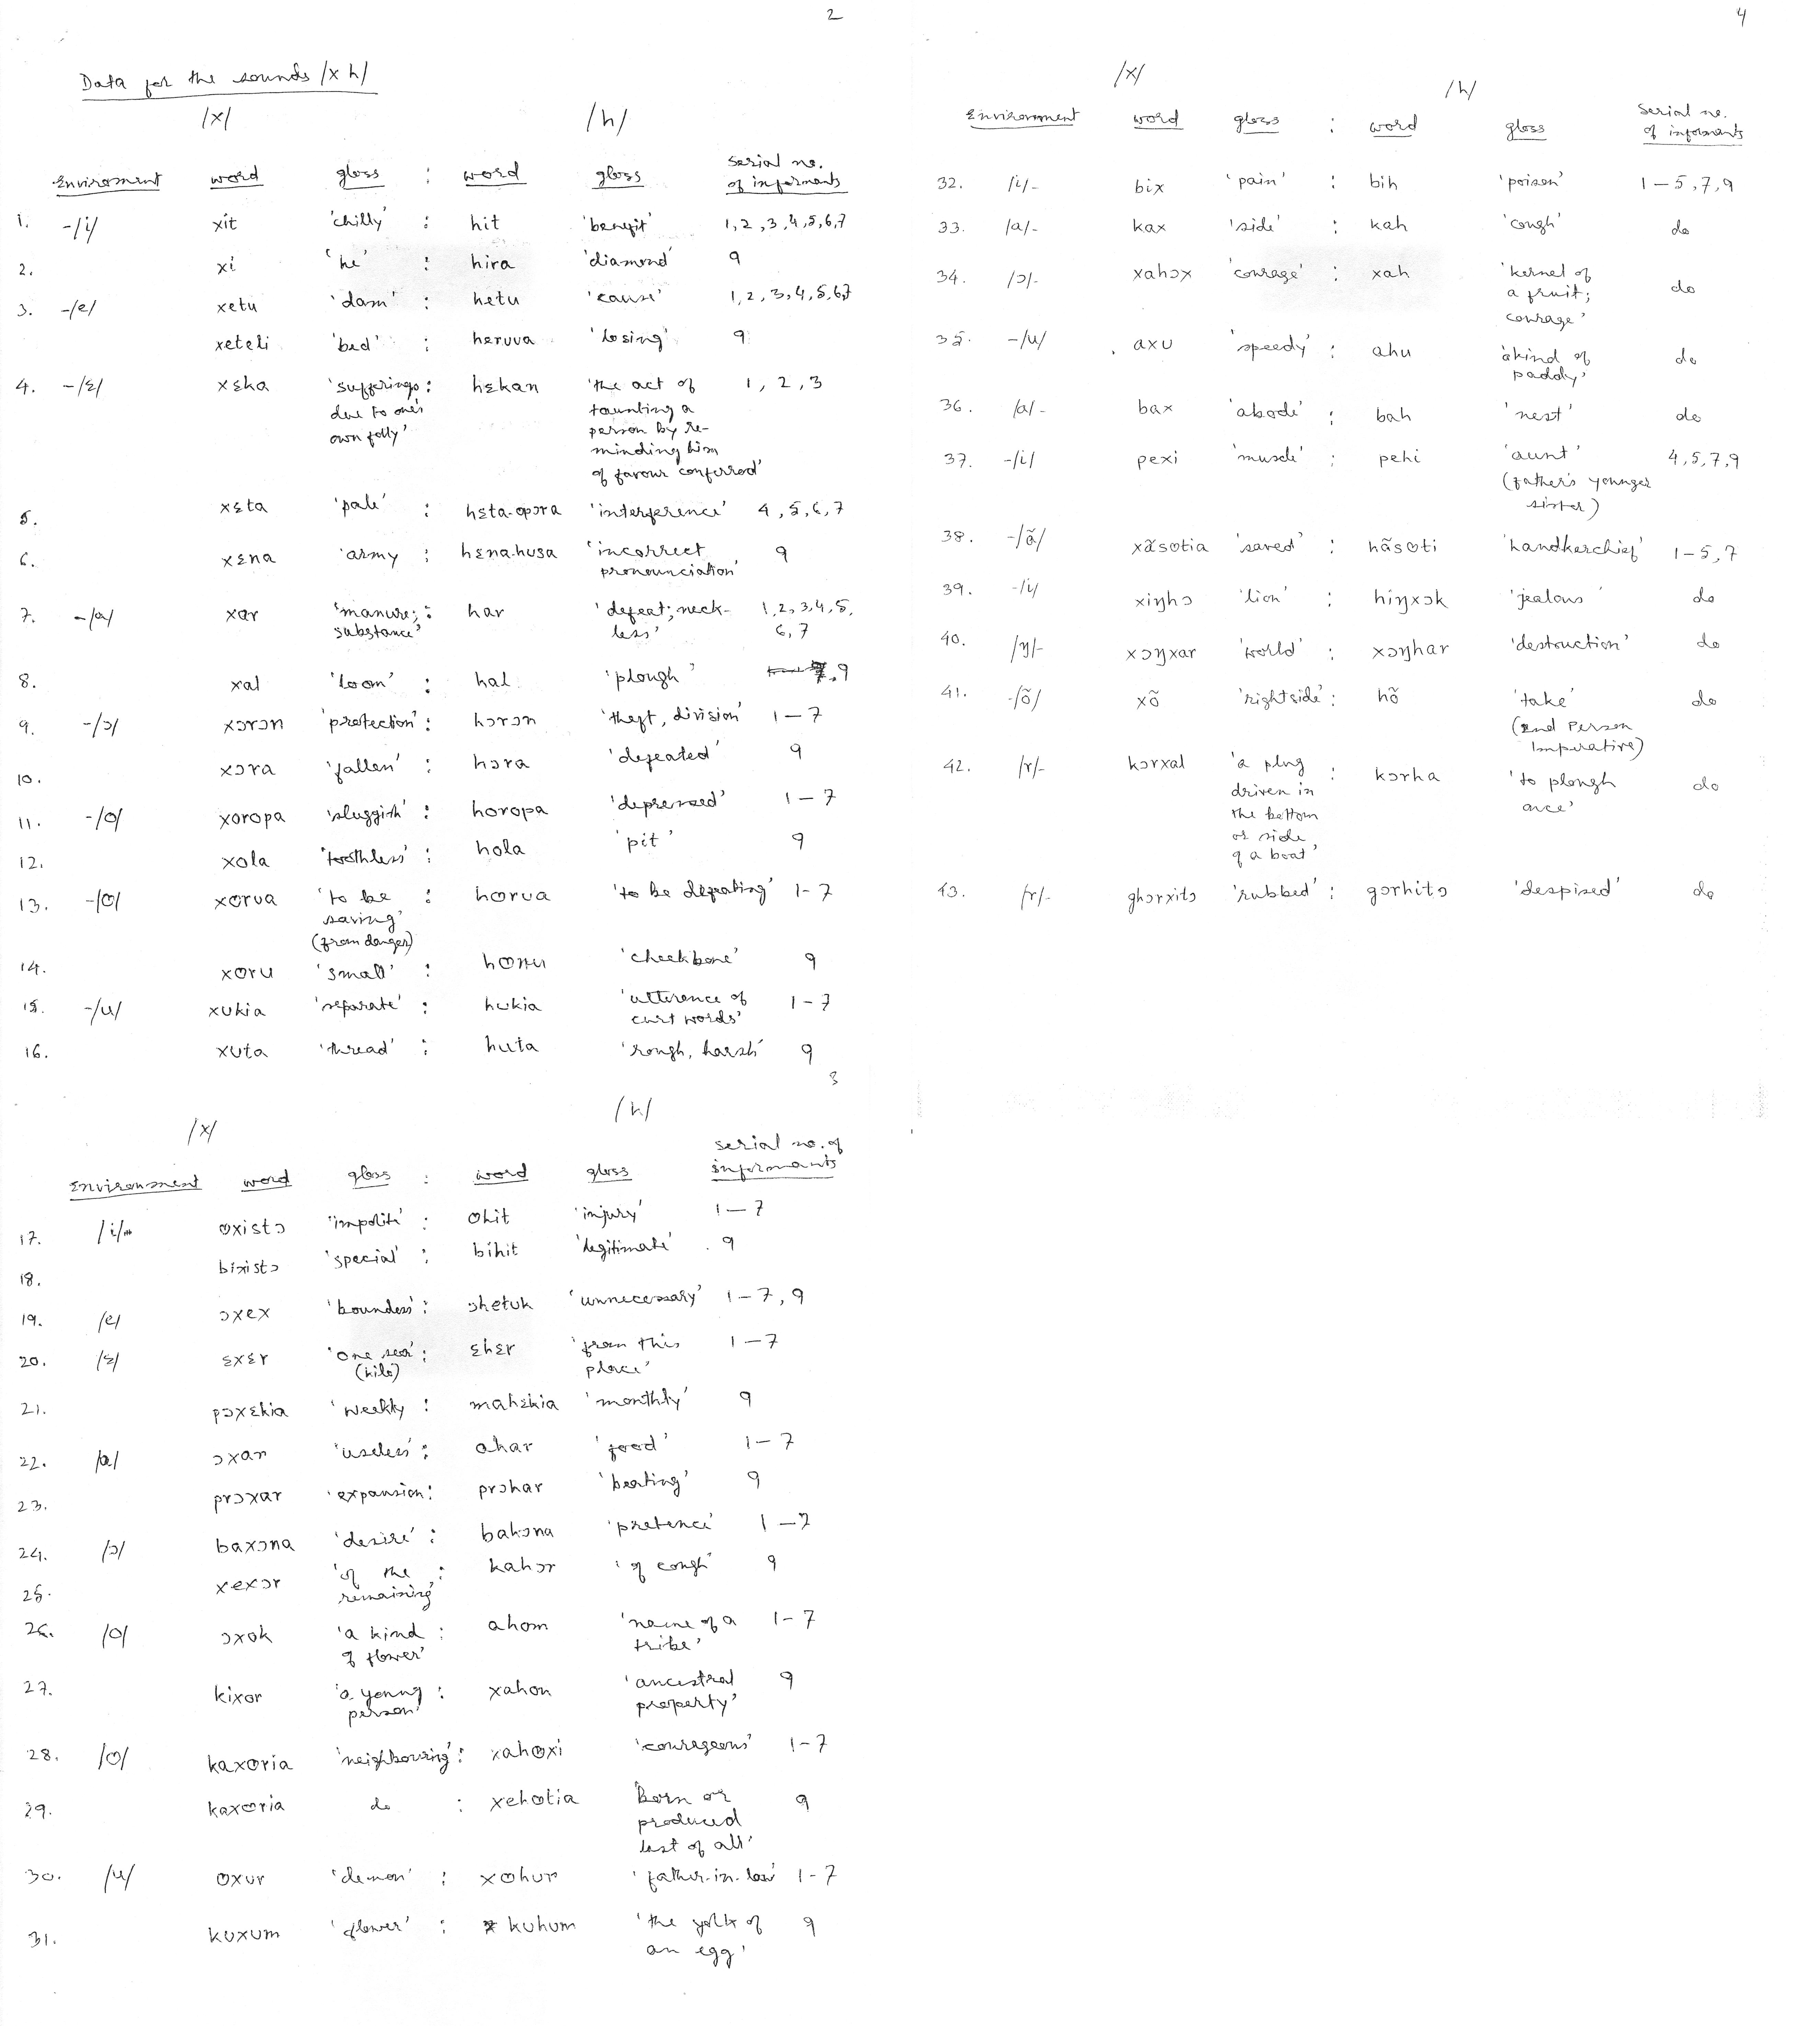 2
Data for the sounds /x h/
/x/ /h/
Environment word gloss : word gloss serial no. of informants
1. -/i/ xit 'chilly' : hit 'benefit' 1,2,3,4,5,6,7
2. xi 'he' : hira 'diamond' 9
3. -/e/ xetu 'dam' : hetu 'cause' 1,2,3,4,5,6,7
xeteli 'bed' : heruva 'losing' 9
4. -/ɛ/ xɛka 'sufferings : hɛkan 'the act of 1, 2, 3
due to one's taunting a
own folly' person by re-
minding him
of favour conferred'
5. xɛta 'pale' : hɛta-opɔra 'interference' 4, 5, 6, 7
6. xɛna 'army : hɛna-husa 'incorrect 9
pronounciation'
7. -/a/ xar 'manure; : har 'defeat; neck- 1,2,3,4,5,
substance' less' 6,7
8. xal 'loom' : hal 'plough' 9
9. -/ɔ/ xɔrɔn 'protection' : hɔrɔn 'theft, division' 1-7
10. xɔra 'fallen' : hɔra 'defeated' 9
11. -/o/ xoropa 'sluggish' : horopa 'depressed' 1-7
12. xola 'toothless' : hola 'pit' 9
13. -/ʊ/ xʊrʊa 'to be : hʊrʊa 'to be defeating' 1-7
saving'
(from danger)
14. xʊru 'small' : 'cheekbone' 9
15. -/u/ xukia 'separate' : hukia 'utterence of 1-7
curt words'
16. xuta 'thread' : huta 'rough, harsh' 9
3
/x/ /h/
Environment word gloss : word gloss serial no. of informants
17. /i/ ʊxistɔ 'impolite' : ʊhit 'injury' 1-7
18. bixistɔ 'special' : bihit 'legitimate' 9
19. /e/ ɔxex 'boundess' : ɔhetuk 'unnecessary' 1-7, 9
20. /ɛ/ ɛxɛr 'one seer' : ɛhɛr 'from this 1-7
(kilo) place'
21. pɔxɛkia 'weekly : mahɛkia 'monthly' 9
22. /a/ ɔxar 'useless' : ahar 'food' 1-7
23. prɔxar 'expansion : prɔhar 'beating' 9
24. /ɔ/ baxɔna 'desire' : bahɔna 'pretence' 1-7
25. xexɔr 'of the : kahɔr 'of cough' 9
remaining'
26. /o/ ɔxok 'a kind : ahom 'name of a 1-7
of flower' tribe'
27. kixor 'a young : xahon 'ancestral 9
person' property'
28. /ʊ/ kaxʊria 'neighbouring' : xahʊxi 'courageous' 1-7
29. kaxʊria do : xehʊtia 'born or 9
produced
last of all'
30. /u/ ʊxur 'demon' : xʊhur 'father-in-law' 1-7
31. kuxum 'flower' : * kuhum 'the yolk of 9
an egg'
4
/x/ /h/
Environment word gloss : word gloss serial no. of informants
32. /i/- bix 'pain' : bih 'poison' 1-5,7,9
33. /a/- kax 'side' : kah 'cough' do
34. /ɔ/- xahɔx 'courage' : xah 'kernel of do
a fruit;
courage'
35. -/u/ axu 'speedy' : ahu 'akind of do
paddy'
36. /a/- bax 'abode' : bah 'nest' do
37. -/i/ pexi 'muscle' : pehi 'aunt' 4,5,7,9
(father's younger
sister)
38. -/ã/ xãsʊtia 'saved' : hãsʊti 'handkerchief' 1-5,7
39. -/i/ xiŋhɔ 'lion' : hiŋxɔk 'jealous' do
40. /ŋ/- xɔŋxar 'world' : xɔŋhar 'destruction' do
41. -/õ/ xõ 'rightside' : hõ 'take' do
(2nd Person
Imperative)
42. /r/- kɔrxal 'a plug : kɔrha 'to plough do
driven in once'
the bottom
or side
of a boat'
43. /r/- ghɔrxitɔ 'rubbed' : gɔrhitɔ 'despised' do